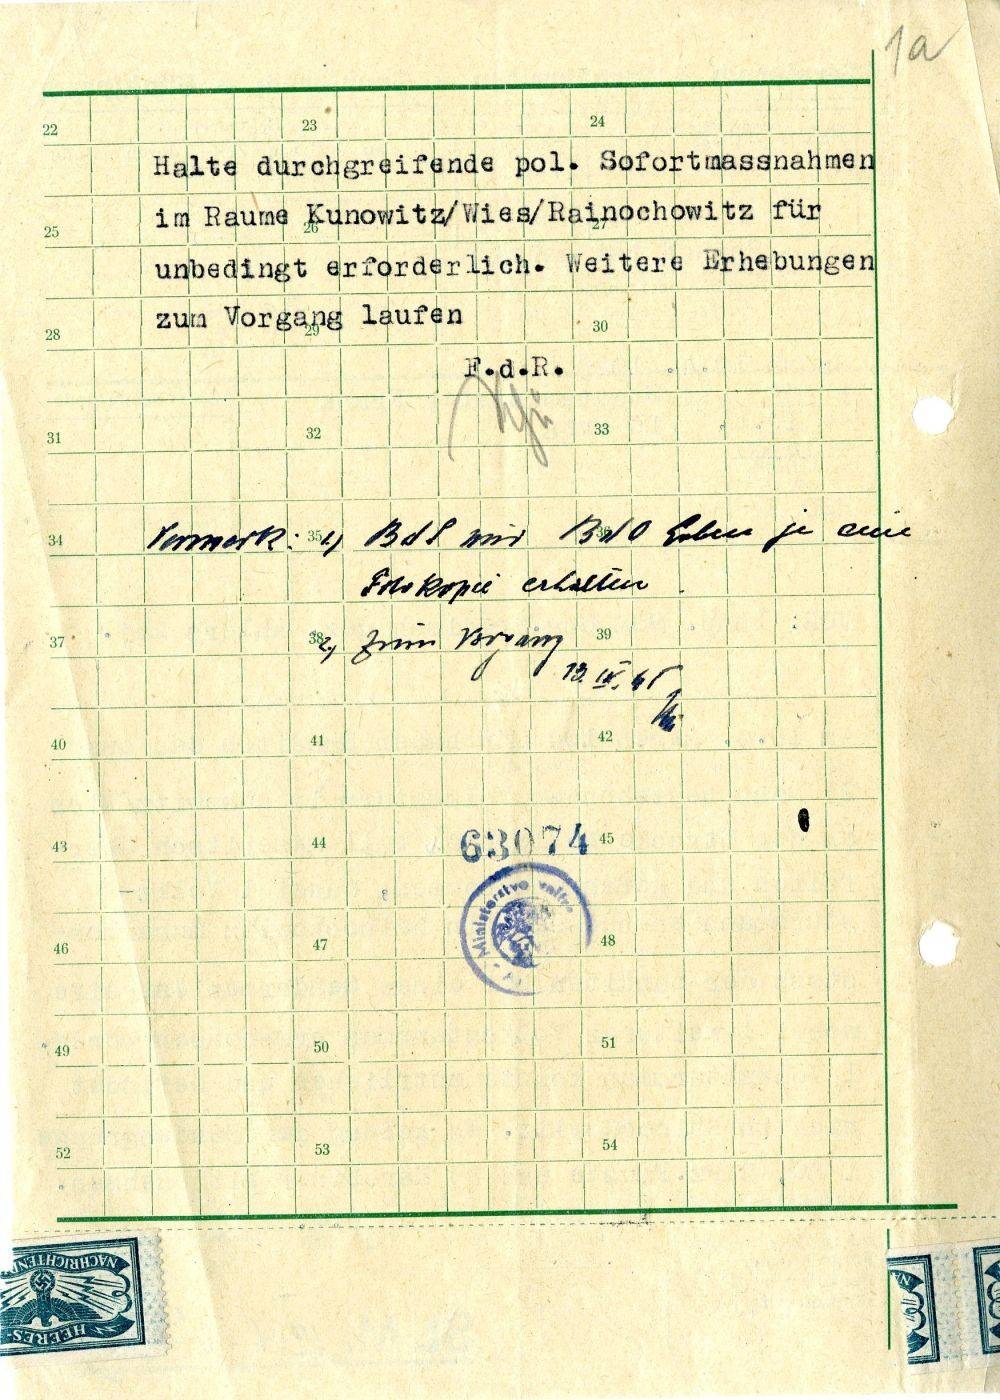 1a
22 23 24
Halte durchgreifende pol. Sofortmassnahmen
im Raume Kunowitz/Wies/Rainochowitz für
25 26 27
unbedingt erforderlich. Weitere Erhebungen
zum Vorgang laufen
28 29 30
F.d.R.
31 32 33
34 35 36
Vermerk: 1) BdS und BdO haben je eine
Fotokopie erhalten.
37 38 39
2) Zum Vorgang
13. IV. 45
40 41 42
63074
43 44 45
Ministerstvo vnitra
46 47 48
49 50 51
52 53 54
HEERES-
NACHRICHTEN
NA